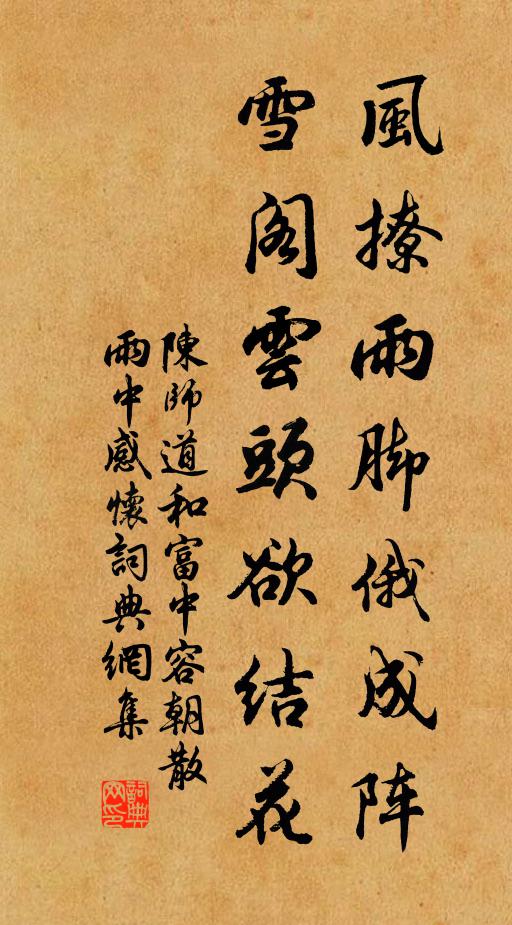 風撩雨脚俄成阵
雪阁雲頭欲结花
陳師道和富中容朝散
雨中感懷詞典網集
詞典
网印